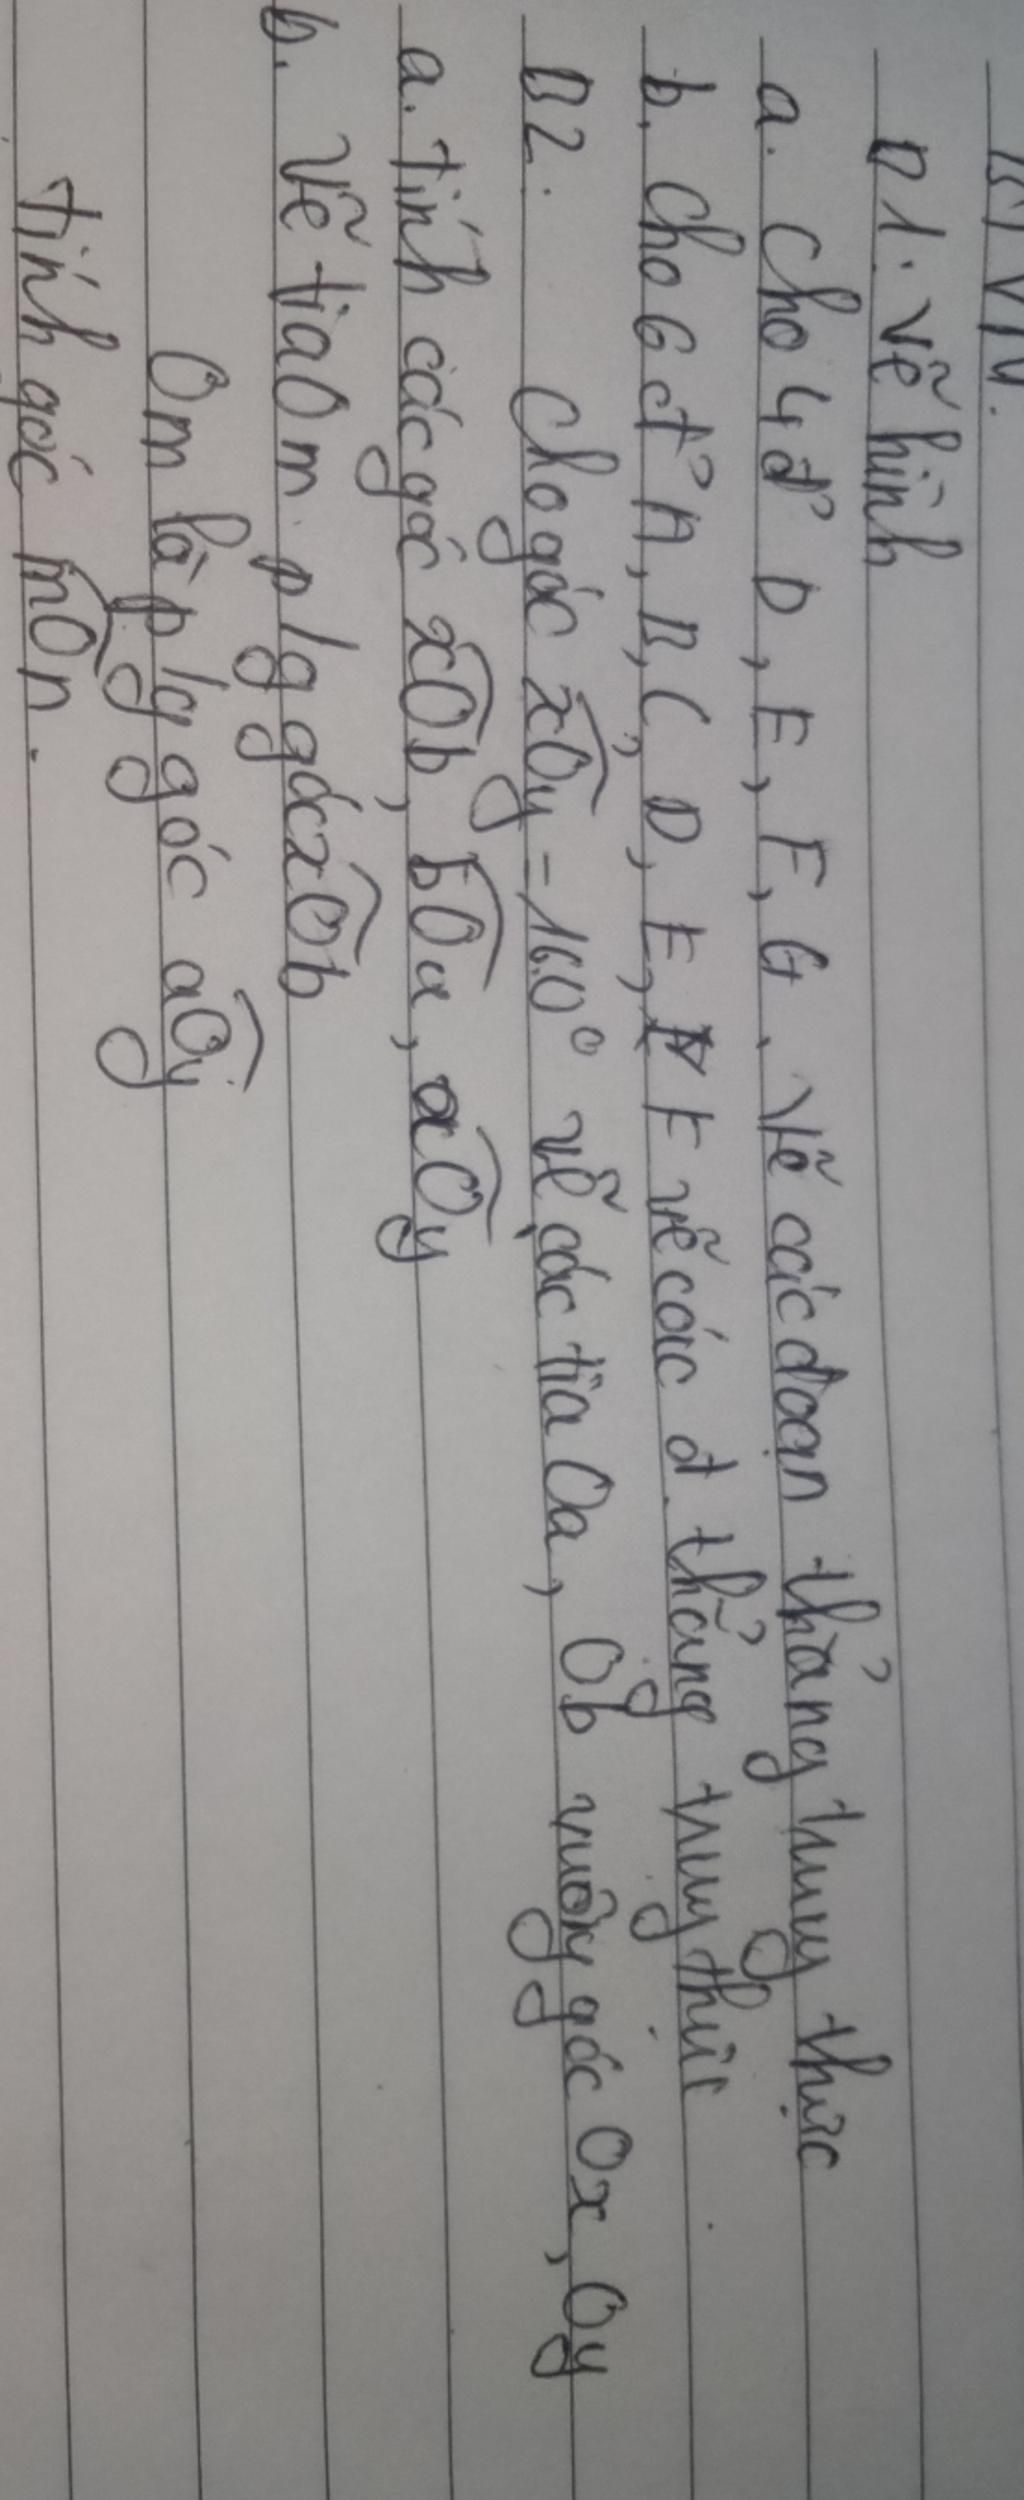 BTVN.
B1: Vẽ hình
a. Cho 4 đ' D, E, F, G. Vẽ các đoạn thẳng truy thức
b. Cho 6 đ' A, B, C, D, E, F vẽ các đ. thẳng truy thức
B2: Cho góc xOy = 160° vẽ các tia Oa, Ob vuông góc Ox, Oy
a. Tính các góc xOb, bOa, aOy
b. Vẽ tia Om p/g góc xOb
Om là p/g góc aOy
Tính góc mOn.